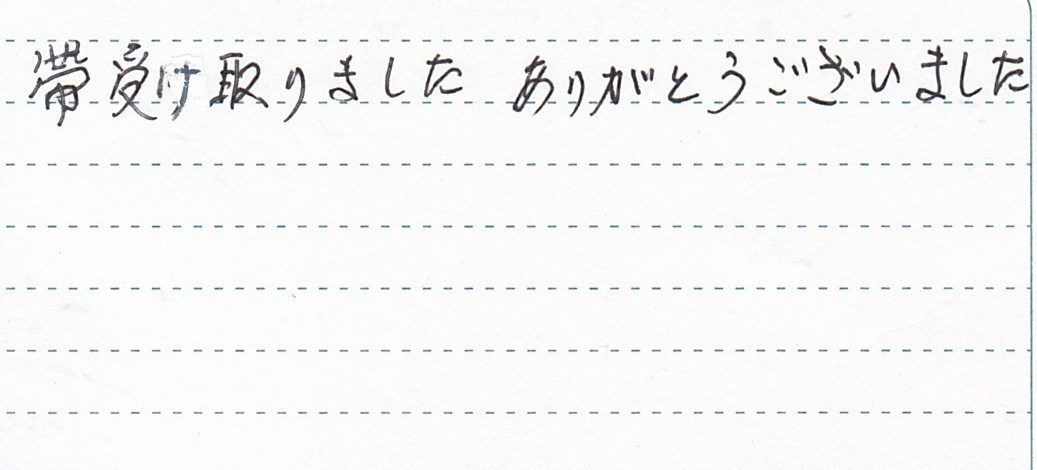 帯受け取りました ありがとうございました